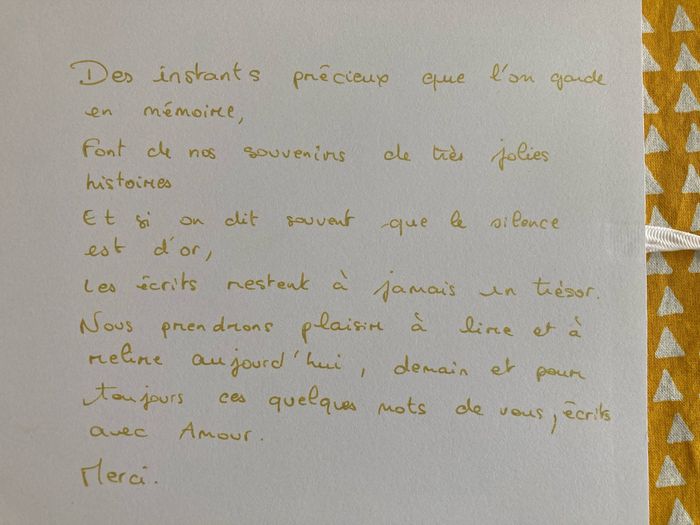 Des instants précieux que l'on garde
en mémoire,
Font de nos souvenirs de très jolies
histoires
Et si on dit souvent que le silence
est d'or,
Les écrits restent à jamais un trésor.
Nous prendrons plaisir à lire et à
relire aujourd'hui, demain et pour
toujours ces quelques mots de vous, écrits
avec Amour.
Merci.